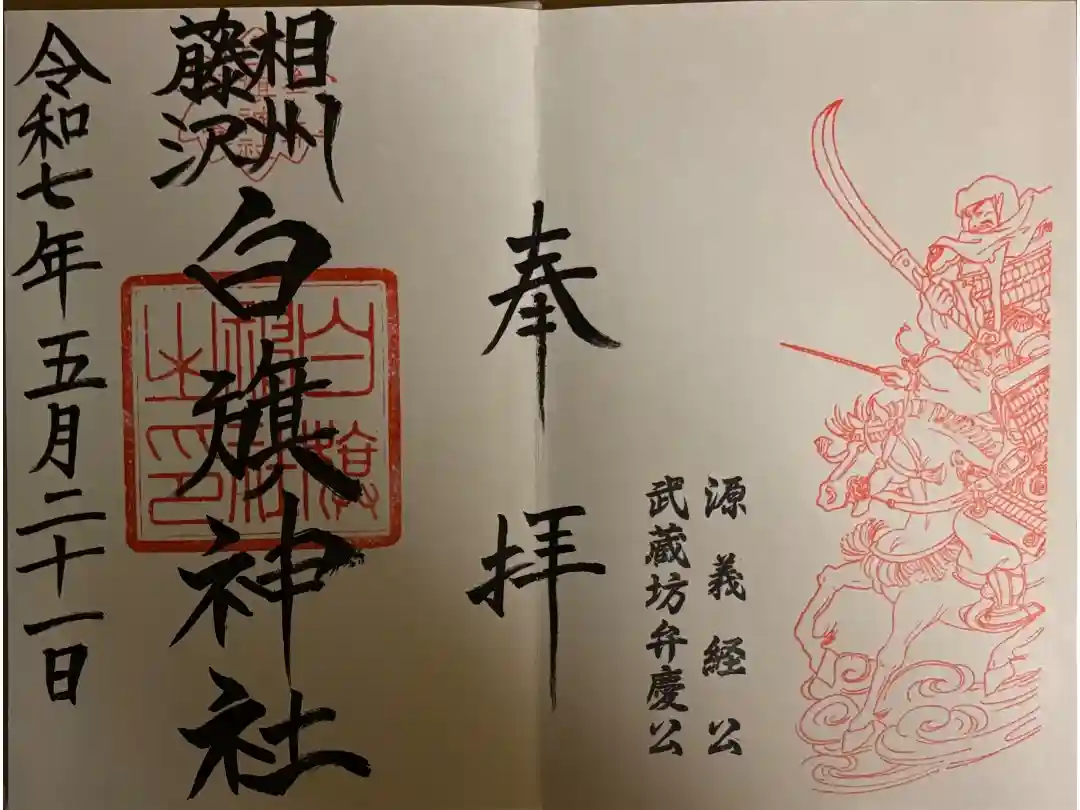 源義経公
武蔵坊弁慶公
奉拝
相州
藤沢
白旗神社
白旗神社之印
令和七年五月二十一日